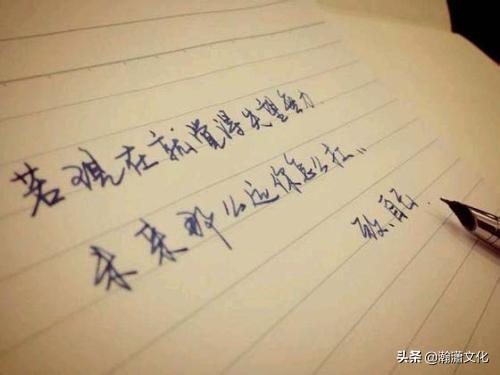 若现在就觉得失望无力
未来那么远你怎么扛..
致、自己.
头条 @瀚潇文化